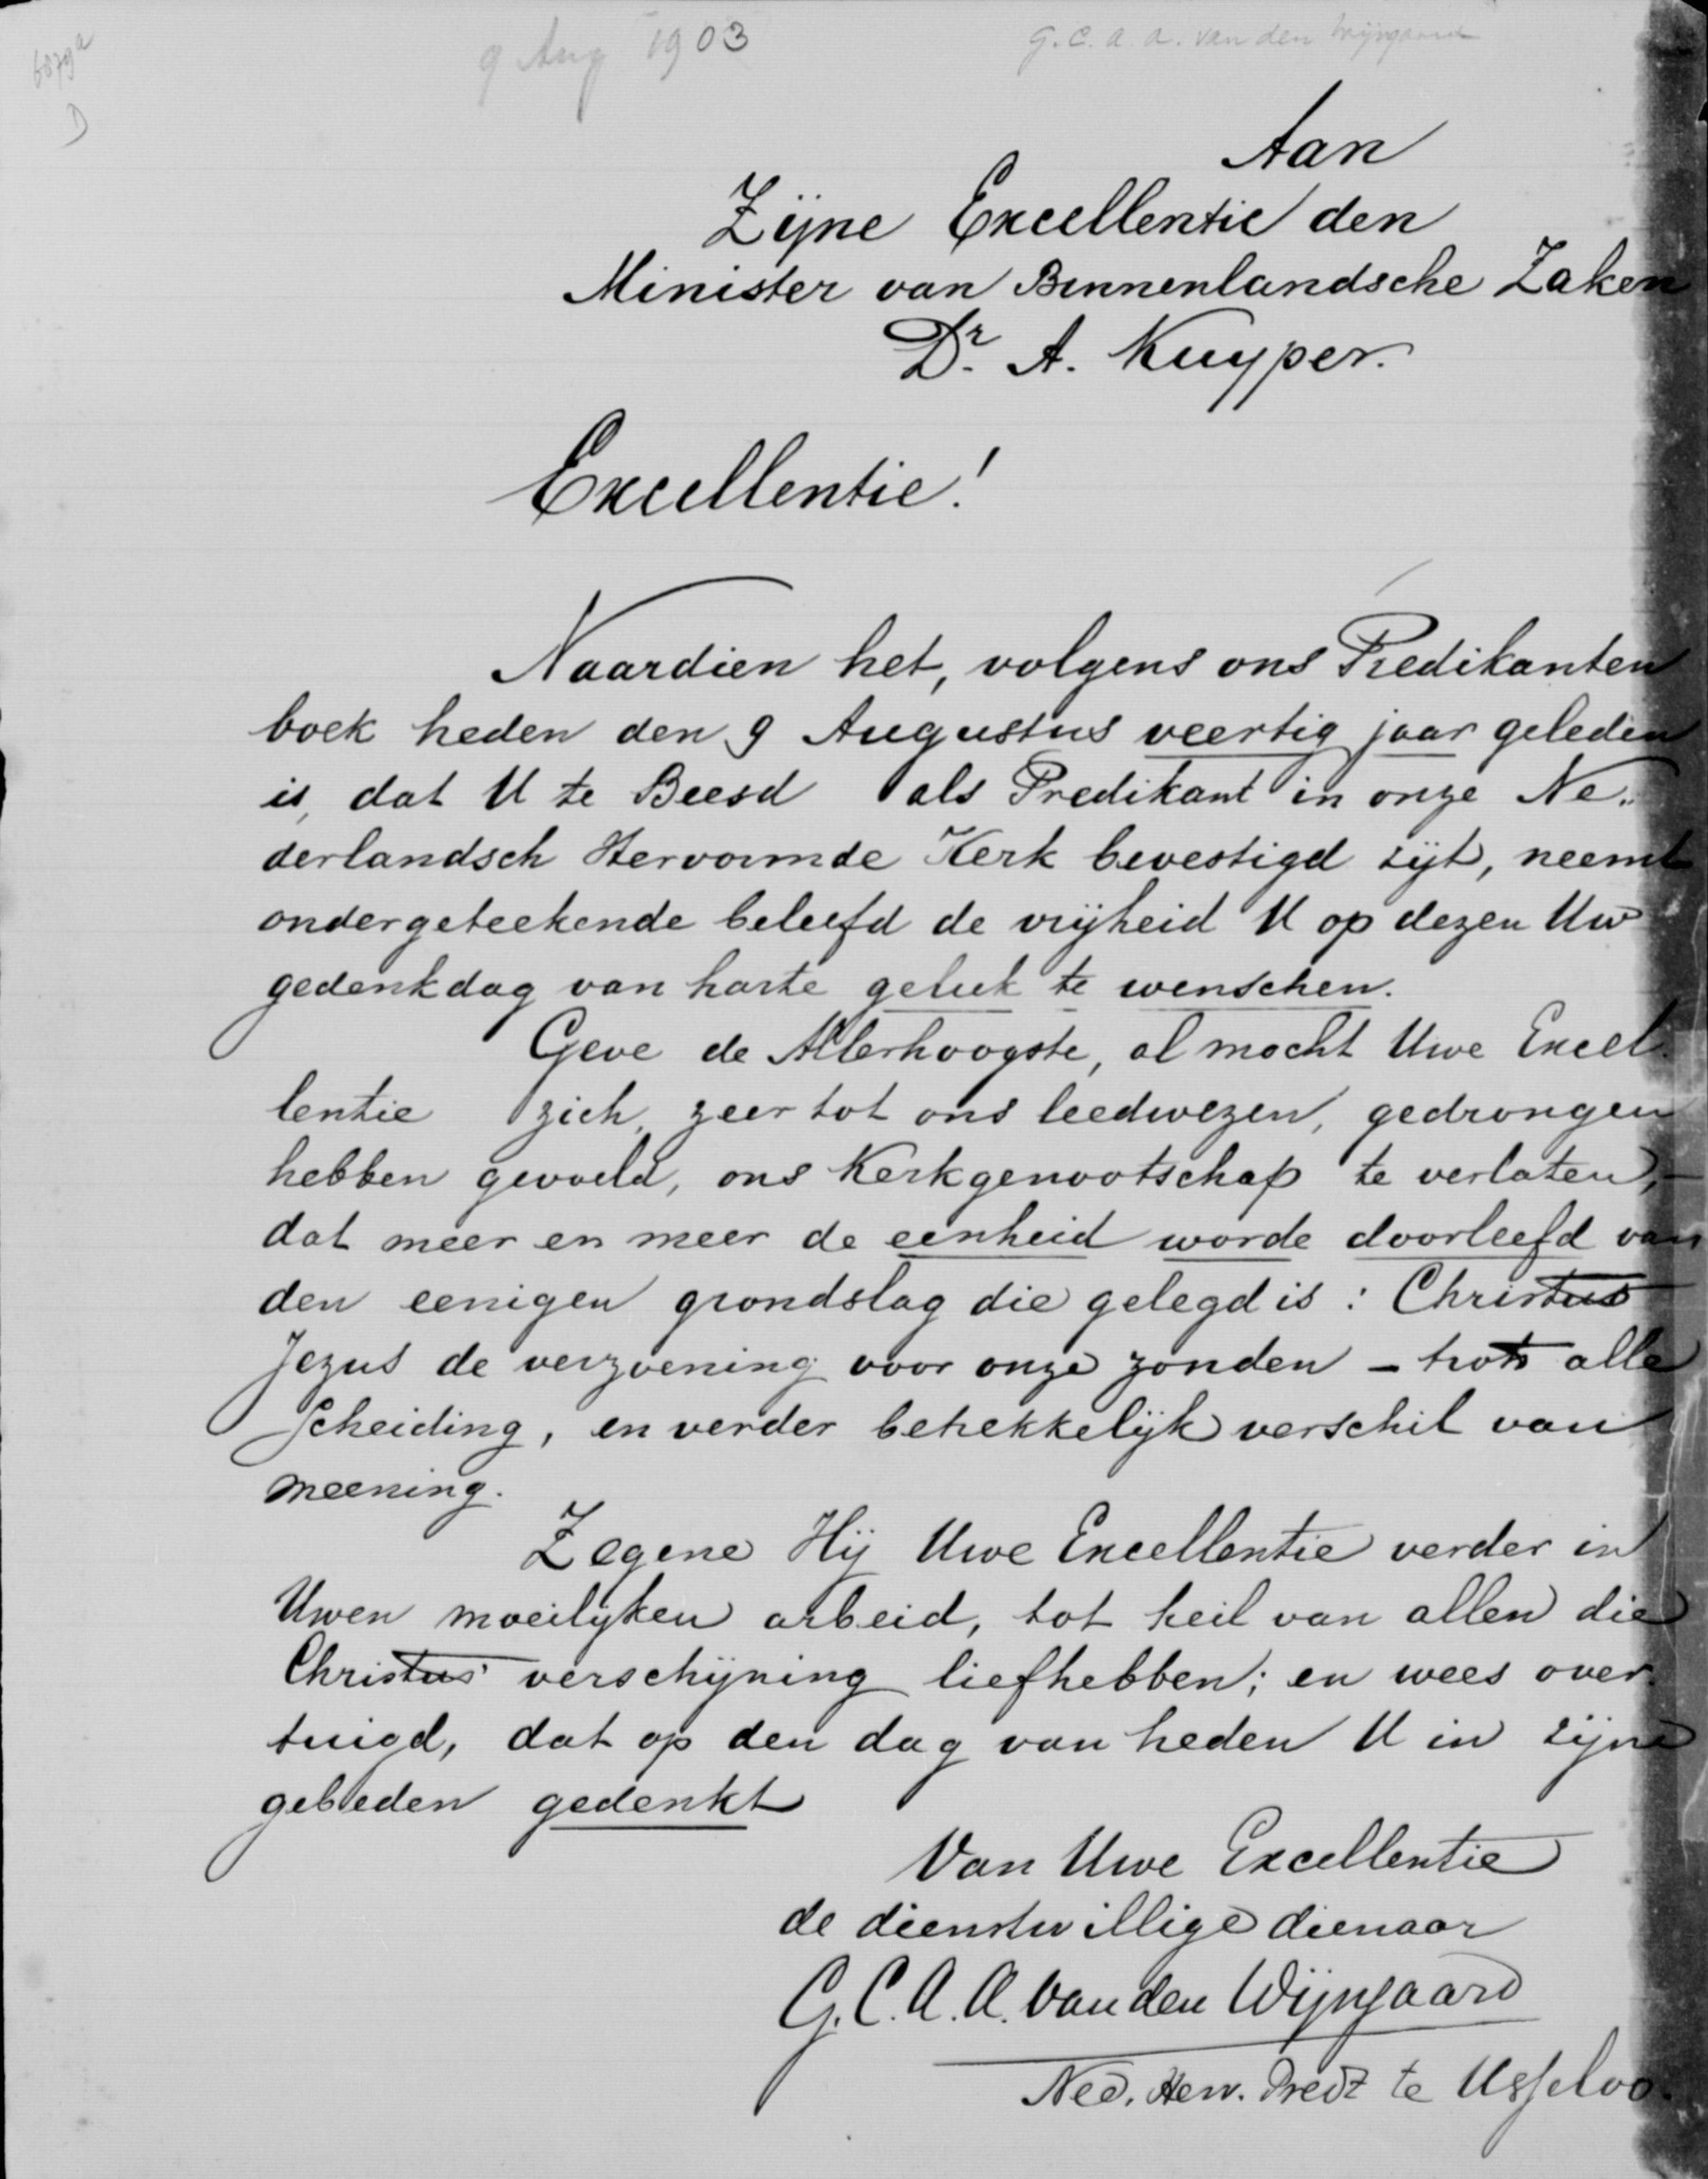 6879a
D
9 Aug 1903
G.C.A.A. van den Wijngaard
Aan
Zijne Excellentie den
Minister van Binnenlandsche Zaken
Dr. A. Kuyper.
Excellentie!
Naardien het, volgens ons Predikanten
boek heden den 9 Augustus veertig jaar geleden
is, dat U te Beesd als Predikant in onze Ne„
derlandsch Hervormde Kerk bevestigd zijt, neemt
ondergeteekende beleefd de vrijheid U op dezen Uw
gedenkdag van harte geluk te wenschen.
Geve de Allerhoogste, al mocht Uwe Excel
lentie zich, zeer tot ons leedwezen, gedrongen
hebben gevoeld, ons Kerkgenootschap te verlaten, –
dat meer en meer de eenheid worde doorleefd van
den eenigen grondslag die gelegd is : Christus
Jezus de verzoening voor onze zonden – trots alle
scheiding, en verder betrekkelijk verschil van
meening.
Zegene Hij Uwe Excellentie verder in
Uwen moeilijken arbeid, tot heil van allen die
Christus' verschijning liefhebben; en wees over
tuigd, dat op den dag van heden U in zijne
gebeden gedenkt
Van Uwe Excellentie
de dienstwillige dienaar
G.C.A.A. van den Wijngaard
Ned. Herv. Predt te Usseloo.